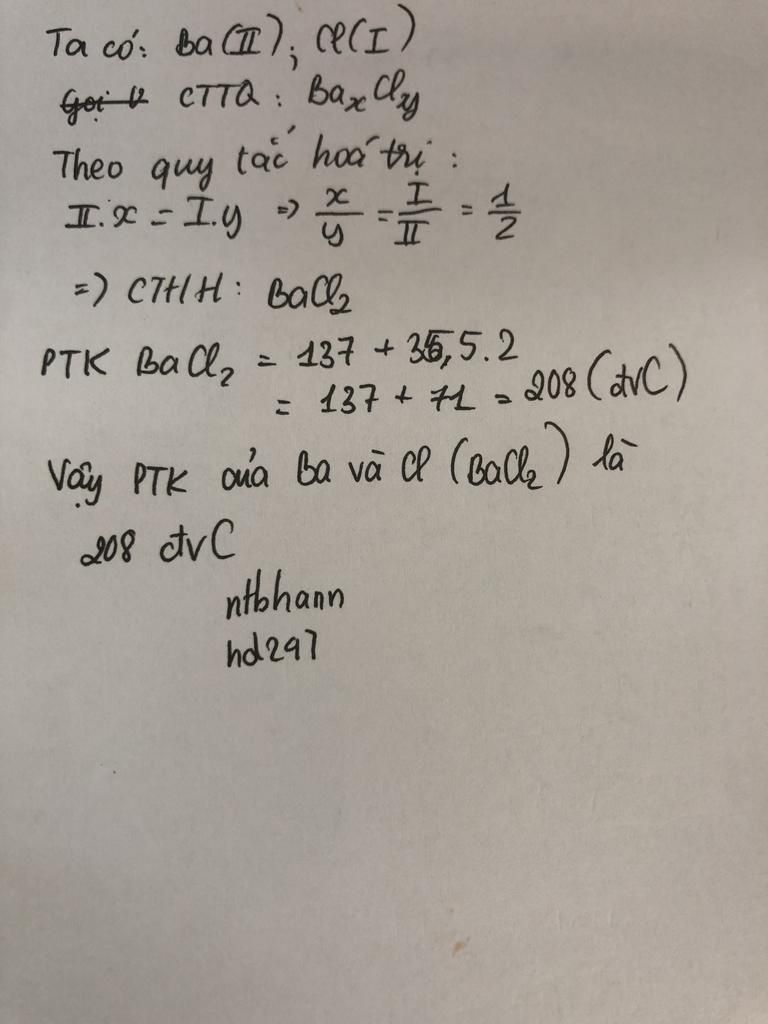 Ta có: Ba(II); Cl(I)
Gọi CTTQ: BaxCly
Theo quy tắc hoá trị:
II.x = I.y => x/y = I/II = 1/2
=> CTHH: BaCl2
PTK BaCl2 = 137 + 35,5.2
= 137 + 71 = 208 (đvC)
Vậy PTK của Ba và Cl (BaCl2) là
208 đvC
ntbhann
hd297